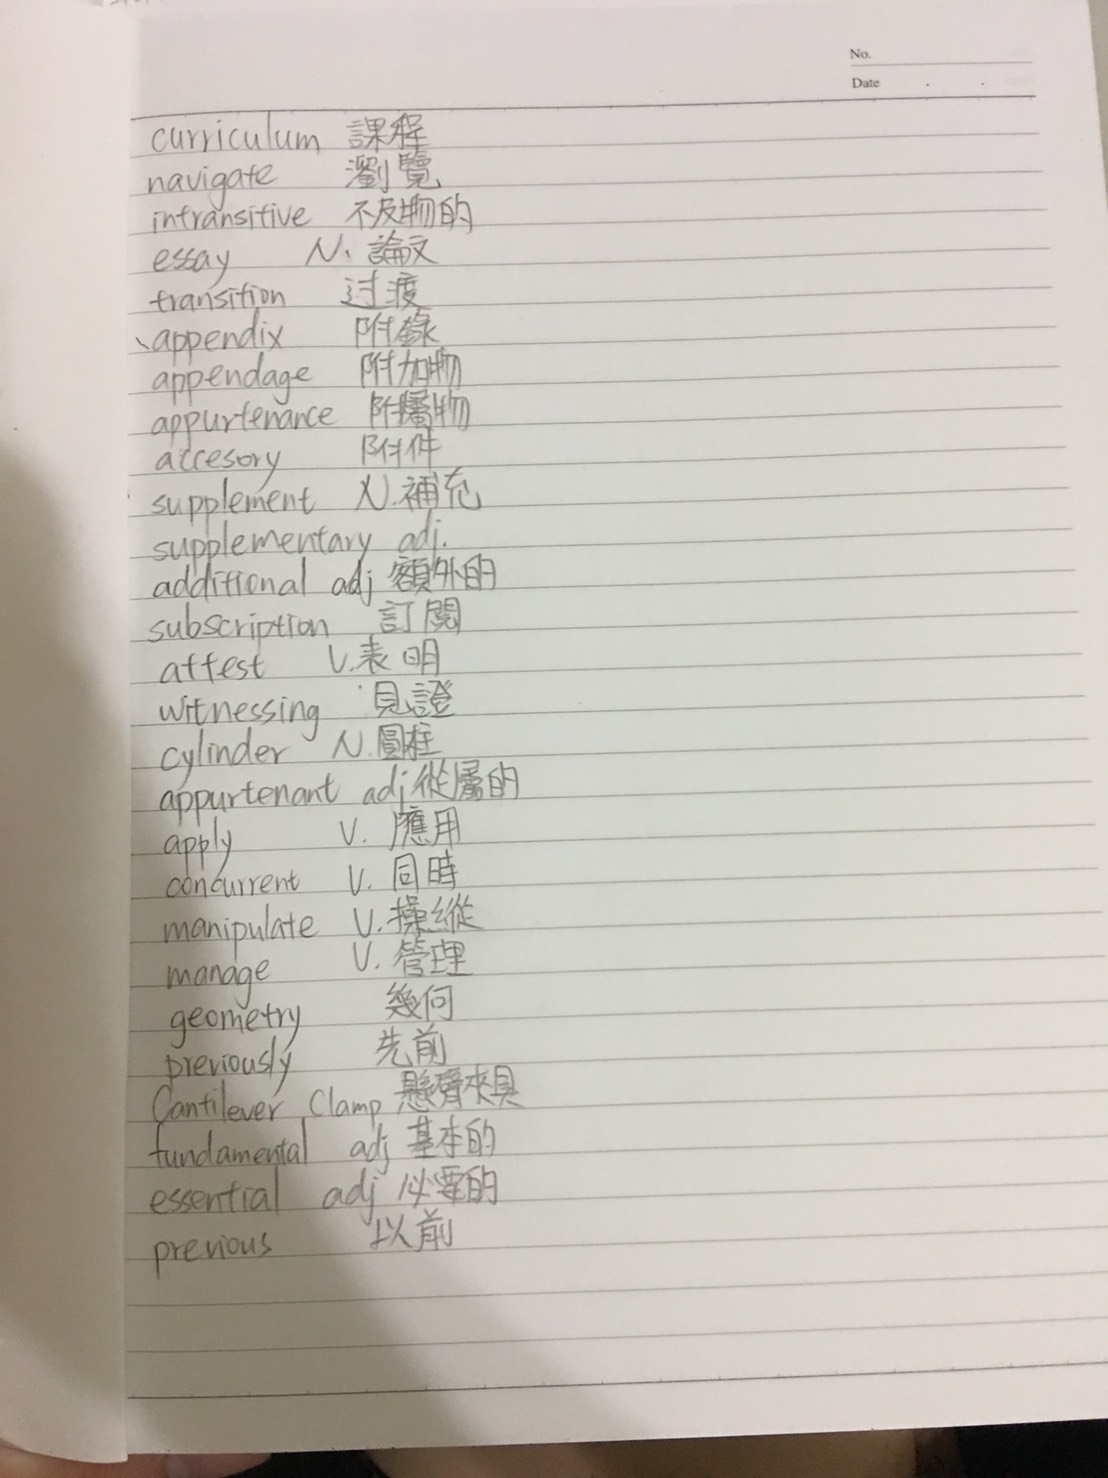 No.
Date . .
curriculum 課程
navigate 瀏覽
intransitive 不及物的
essay N. 論文
transition 过渡
、appendix 附錄
appendage 附加物
appurtenance 附屬物
accesory 附件
supplement N.補充
supplementary adj.
additional adj 額外的
subscription 訂閱
attest V.表明
witnessing 見證
cylinder N.圓柱
appurtenant adj 從屬的
apply V. 應用
concurrent V. 同時
manipulate V.操縱
manage V. 管理
geometry 幾何
previously 先前
Cantilever Clamp 懸臂夾具
fundamental adj 基本的
essential adj 必要的
previous 以前